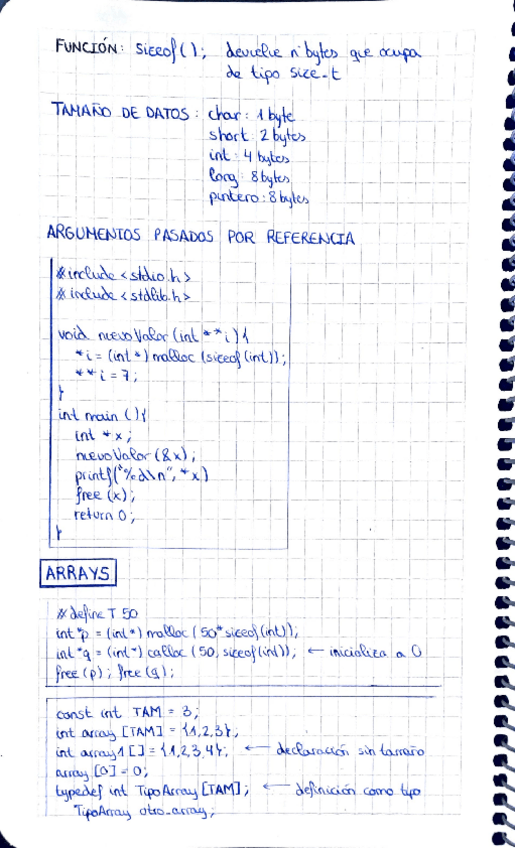 FUNCIÓN: sizeof(); devuelve nº bytes que ocupa
de tipo size_t
TAMAÑO DE DATOS: char: 1 byte
short: 2 bytes
int: 4 bytes
long: 8 bytes
puntero: 8 bytes
ARGUMENTOS PASADOS POR REFERENCIA
#include <stdio.h>
#include <stdlib.h>
void nuevoValor (int **i){
*i = (int*) malloc (sizeof(int));
**i = 7;
}
int main (){
int *x;
nuevoValor (&x);
printf("%d\n", *x)
free (x);
return 0;
}
ARRAYS
#define T 50
int *p = (int*) malloc (50*sizeof(int));
int *q = (int*) calloc (50, sizeof(int)); ← inicializa a 0
free (p); free (q);
const int TAM = 3;
int array [TAM] = {1,2,3};
int array1 [] = {1,2,3,4}; ← declaración sin tamaño
array [0] = 0;
typedef int TipoArray [TAM]; ← definición como tipo
TipoArray otro_array;